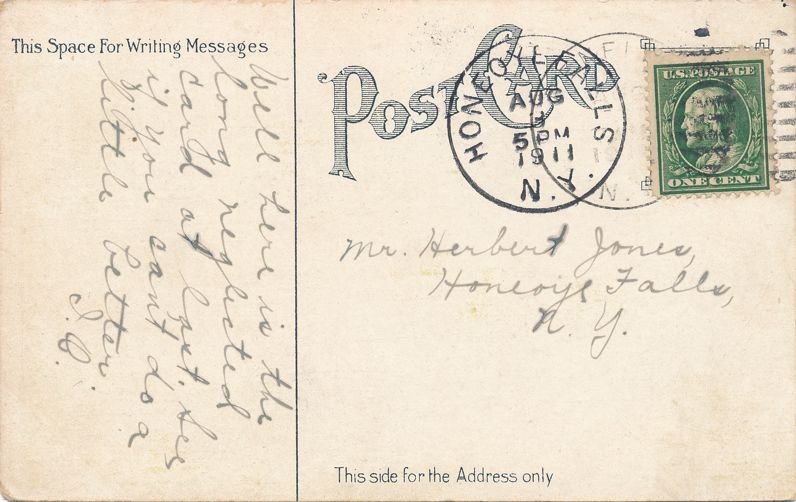 This Space For Writing Messages
POST CARD
HONEOYE FALLS
AUG
5 PM
1911
N.Y.
U.S. POSTAGE
ONE CENT
Well here is the
long neglected
card at last. See
if you cant do a
little better.
Mr. Herbert Jones,
Honeoye Falls,
N. Y.
This side for the Address only